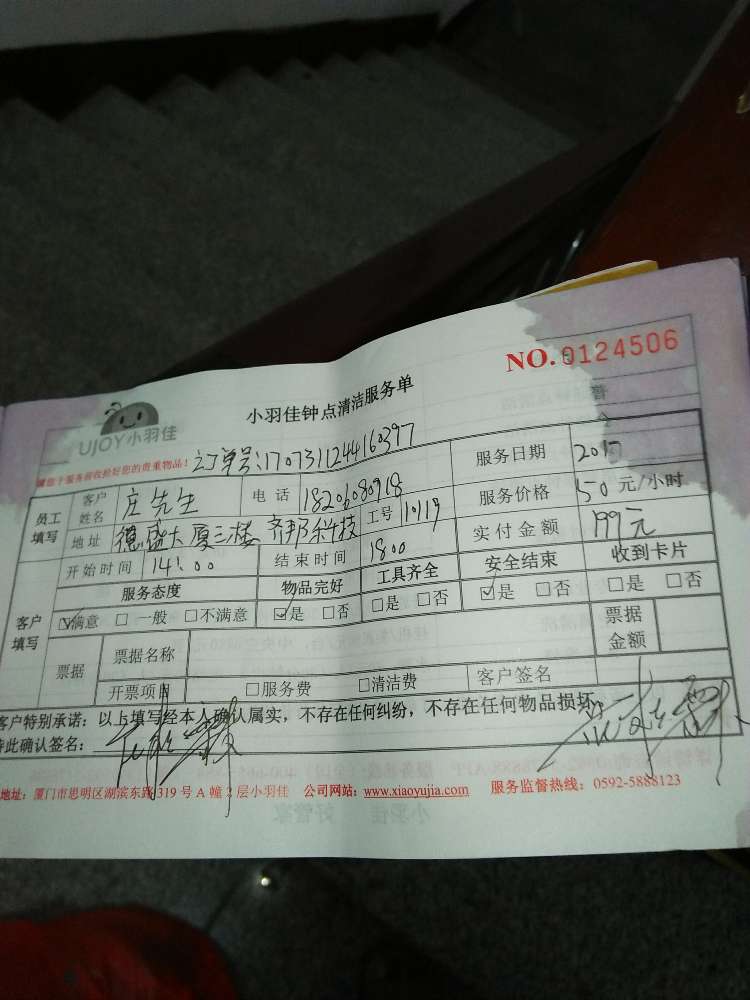 NO.0124506
UJOY小羽佳
小羽佳钟点清洁服务单
请您于服务前收拾好您的贵重物品！ 订单号:1707311244160397
员工填写 客户姓名 庄先生 电话 18206080918 服务日期 2017
地址 德盛大厦三楼 齐邦科技 工号 10119 服务价格 50 元/小时
开始时间 14:00 结束时间 1800 实付金额 199元
客户填写 服务态度 物品完好 工具齐全 安全结束 收到卡片
☑满意 □一般 □不满意 ☑是 □否 □是 □否 ☑是 □否 □是 □否
票据 票据名称 票据金额
开票项目 □服务费 □清洁费 客户签名
客户特别承诺：以上填写经本人确认属实，不存在任何纠纷，不存在任何物品损坏
特此确认签名：
地址：厦门市思明区湖滨东路319号A幢2层小羽佳 公司网站：www.xiaoyujia.com 服务监督热线：0592-5888123